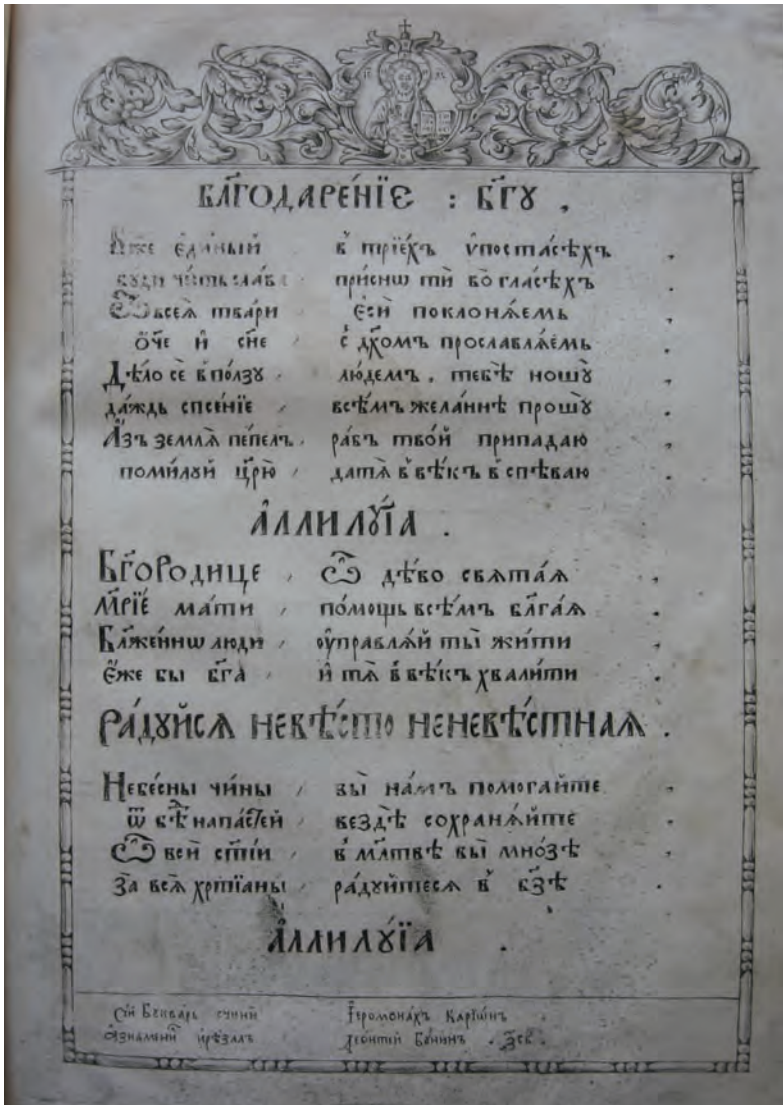 БЛ҃ГОДАРЕ́НЇЄ : БГ҃У .
Бж҃е є҆ди́ный в̾ трїе́хъ ѵ҆поста́сѣхъ .
буди че́сть сла́ва при́снѡ тѝ во гла́сѣхъ
Ѿ всеѧ̀ тва́ри є҆сѝ поклонѧ́емь ,
ѻ҆́ч҃е и҆ сн҃е с̾ дх҃омъ прославлѧ́емь ,
Дѣ́ло сѐ в̾ по́лзу , лю́демъ . тебѣ̀ ношꙋ̀ ,
да́ждь сп҃се́нїе , всѣ̑мъ жела́ннѣ прошꙋ̀ ,
А҆́зъ землѧ̀ пе́пелъ , ра́бъ тво́й припадаю
поми́луй цр҃ю̀ , да тѧ̀ в̾ вѣ́къ в̾спѣваю ,
А҆ЛЛИЛꙊ́ЇА .
БГ҃ОРОДИЦЕ , Ѽ дѣ́во свѧта́ѧ ,
Мр҃ІЕ мати , по́мощь всѣ́мъ бл҃га́ѧ .
Бл҃же́ннѡ люди , ѹ҆правлѧ́й ты̀ жи́ти .
є҆́же бы бг҃а , и҆ тѧ̀ в̾ вѣ́къ хвали́ти .
РА́ДꙊЙСѦ НЕВѢ́СТО НЕНЕВѢ́СТНАѦ .
Небе́сны чи́ны , вы̀ на́мъ помога́йте .
ѿ всѣ́х напа́стей , вездѣ̀ сохранѧ́йте .
Ѽ всѝ ст҃і́и , в̾ мл҃твѣ вы̀ мно́зѣ .
За всѧ̀ хрⷭ҇тїа́ны , ра́дуйтесѧ в̾ бз҃ѣ .
А҆ЛЛИЛꙊ́ЇА .
Сі́й Бꙋква́рь счини́ і҆еромона́хъ Карїѡ́нъ .
а҆ знамени́ и҆ рѣ́залъ леѻ́нтей Бꙋ́нинъ .